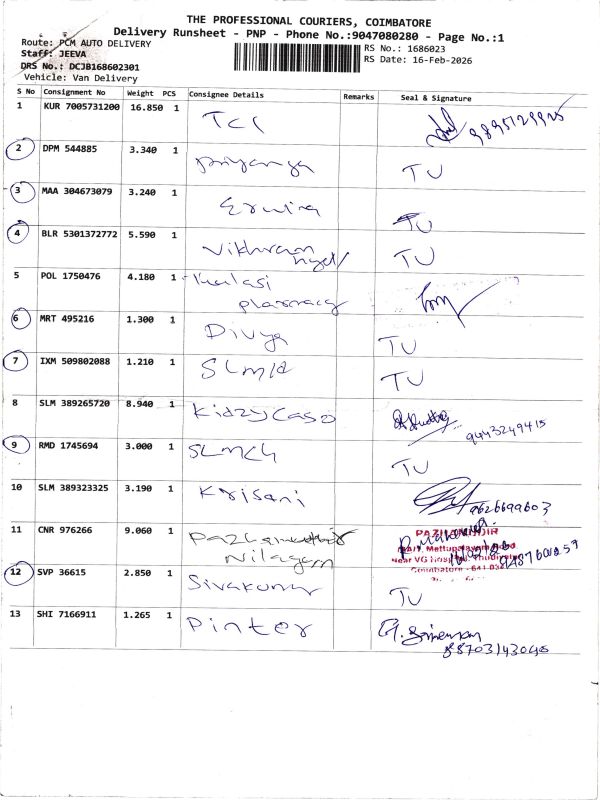 THE PROFESSIONAL COURIERS, COIMBATORE
Delivery Runsheet - PNP - Phone No.:9047080280 - Page No.:1
Route: PCM AUTO DELIVERY
Staff: JEEVA
DRS No.: DCJB168602301
Vehicle: Van Delivery
RS No.: 1686023
RS Date: 16-Feb-2026
S No Consignment No Weight PCS Consignee Details Remarks Seal & Signature
1 KUR 7005731200 16.850 1 TCI
2 DPM 544885 3.340 1 Priyanga TU
3 MAA 304673079 3.240 1 TU
4 BLR 5301372772 5.590 1 Vikhram TU
5 POL 1750476 4.180 1
6 MRT 495216 1.300 1 Divya TU
7 IXM 509802088 1.210 1 TU
8 SLM 389265720 8.940 1 Kidzycaso
9443249415
9 RMD 1745694 3.000 1 TU
10 SLM 389323325 3.190 1 Krisani
9626699603
11 CNR 976266 9.060 1
Nilagam
12 SVP 36615 2.850 1 Sivakumar TU
13 SHI 7166911 1.265 1 Pinter